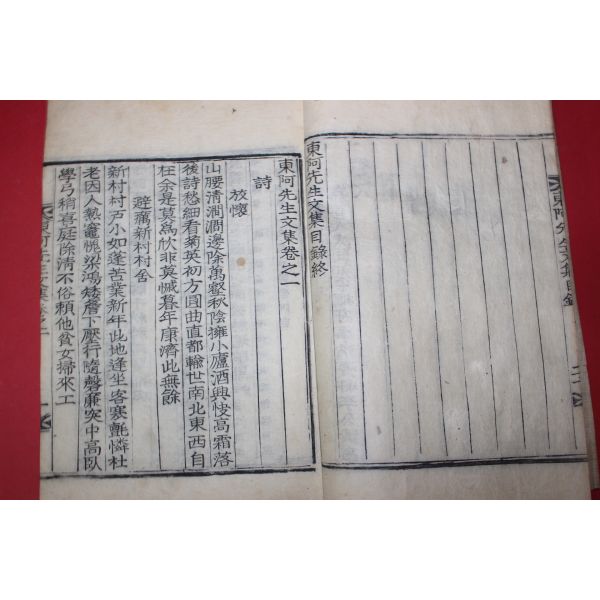 東阿先生文集目錄
東阿先生文集目錄終
東阿先生文集卷之一
詩
放懷
山腰淸澗澗邊除萬壑秋陰擁小廬酒興悛高霜落
後詩愁細看菊英初方圓曲直都輸世南北東西自
在余是莫爲欣非莫慽暮年康濟此無餘
避痛新村村舍
新村村戶小如蓬苦業新年此地逢坐客寒氈憐杜
老因人熱竈愧梁鴻矮簷下壓行隨磬廉突中高臥
學弓稍喜庭除淸不俗賴他貧女掃來工